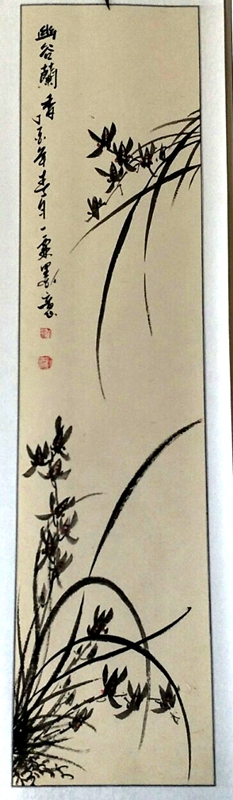 幽谷蘭香丁亥年春月一霖墨意